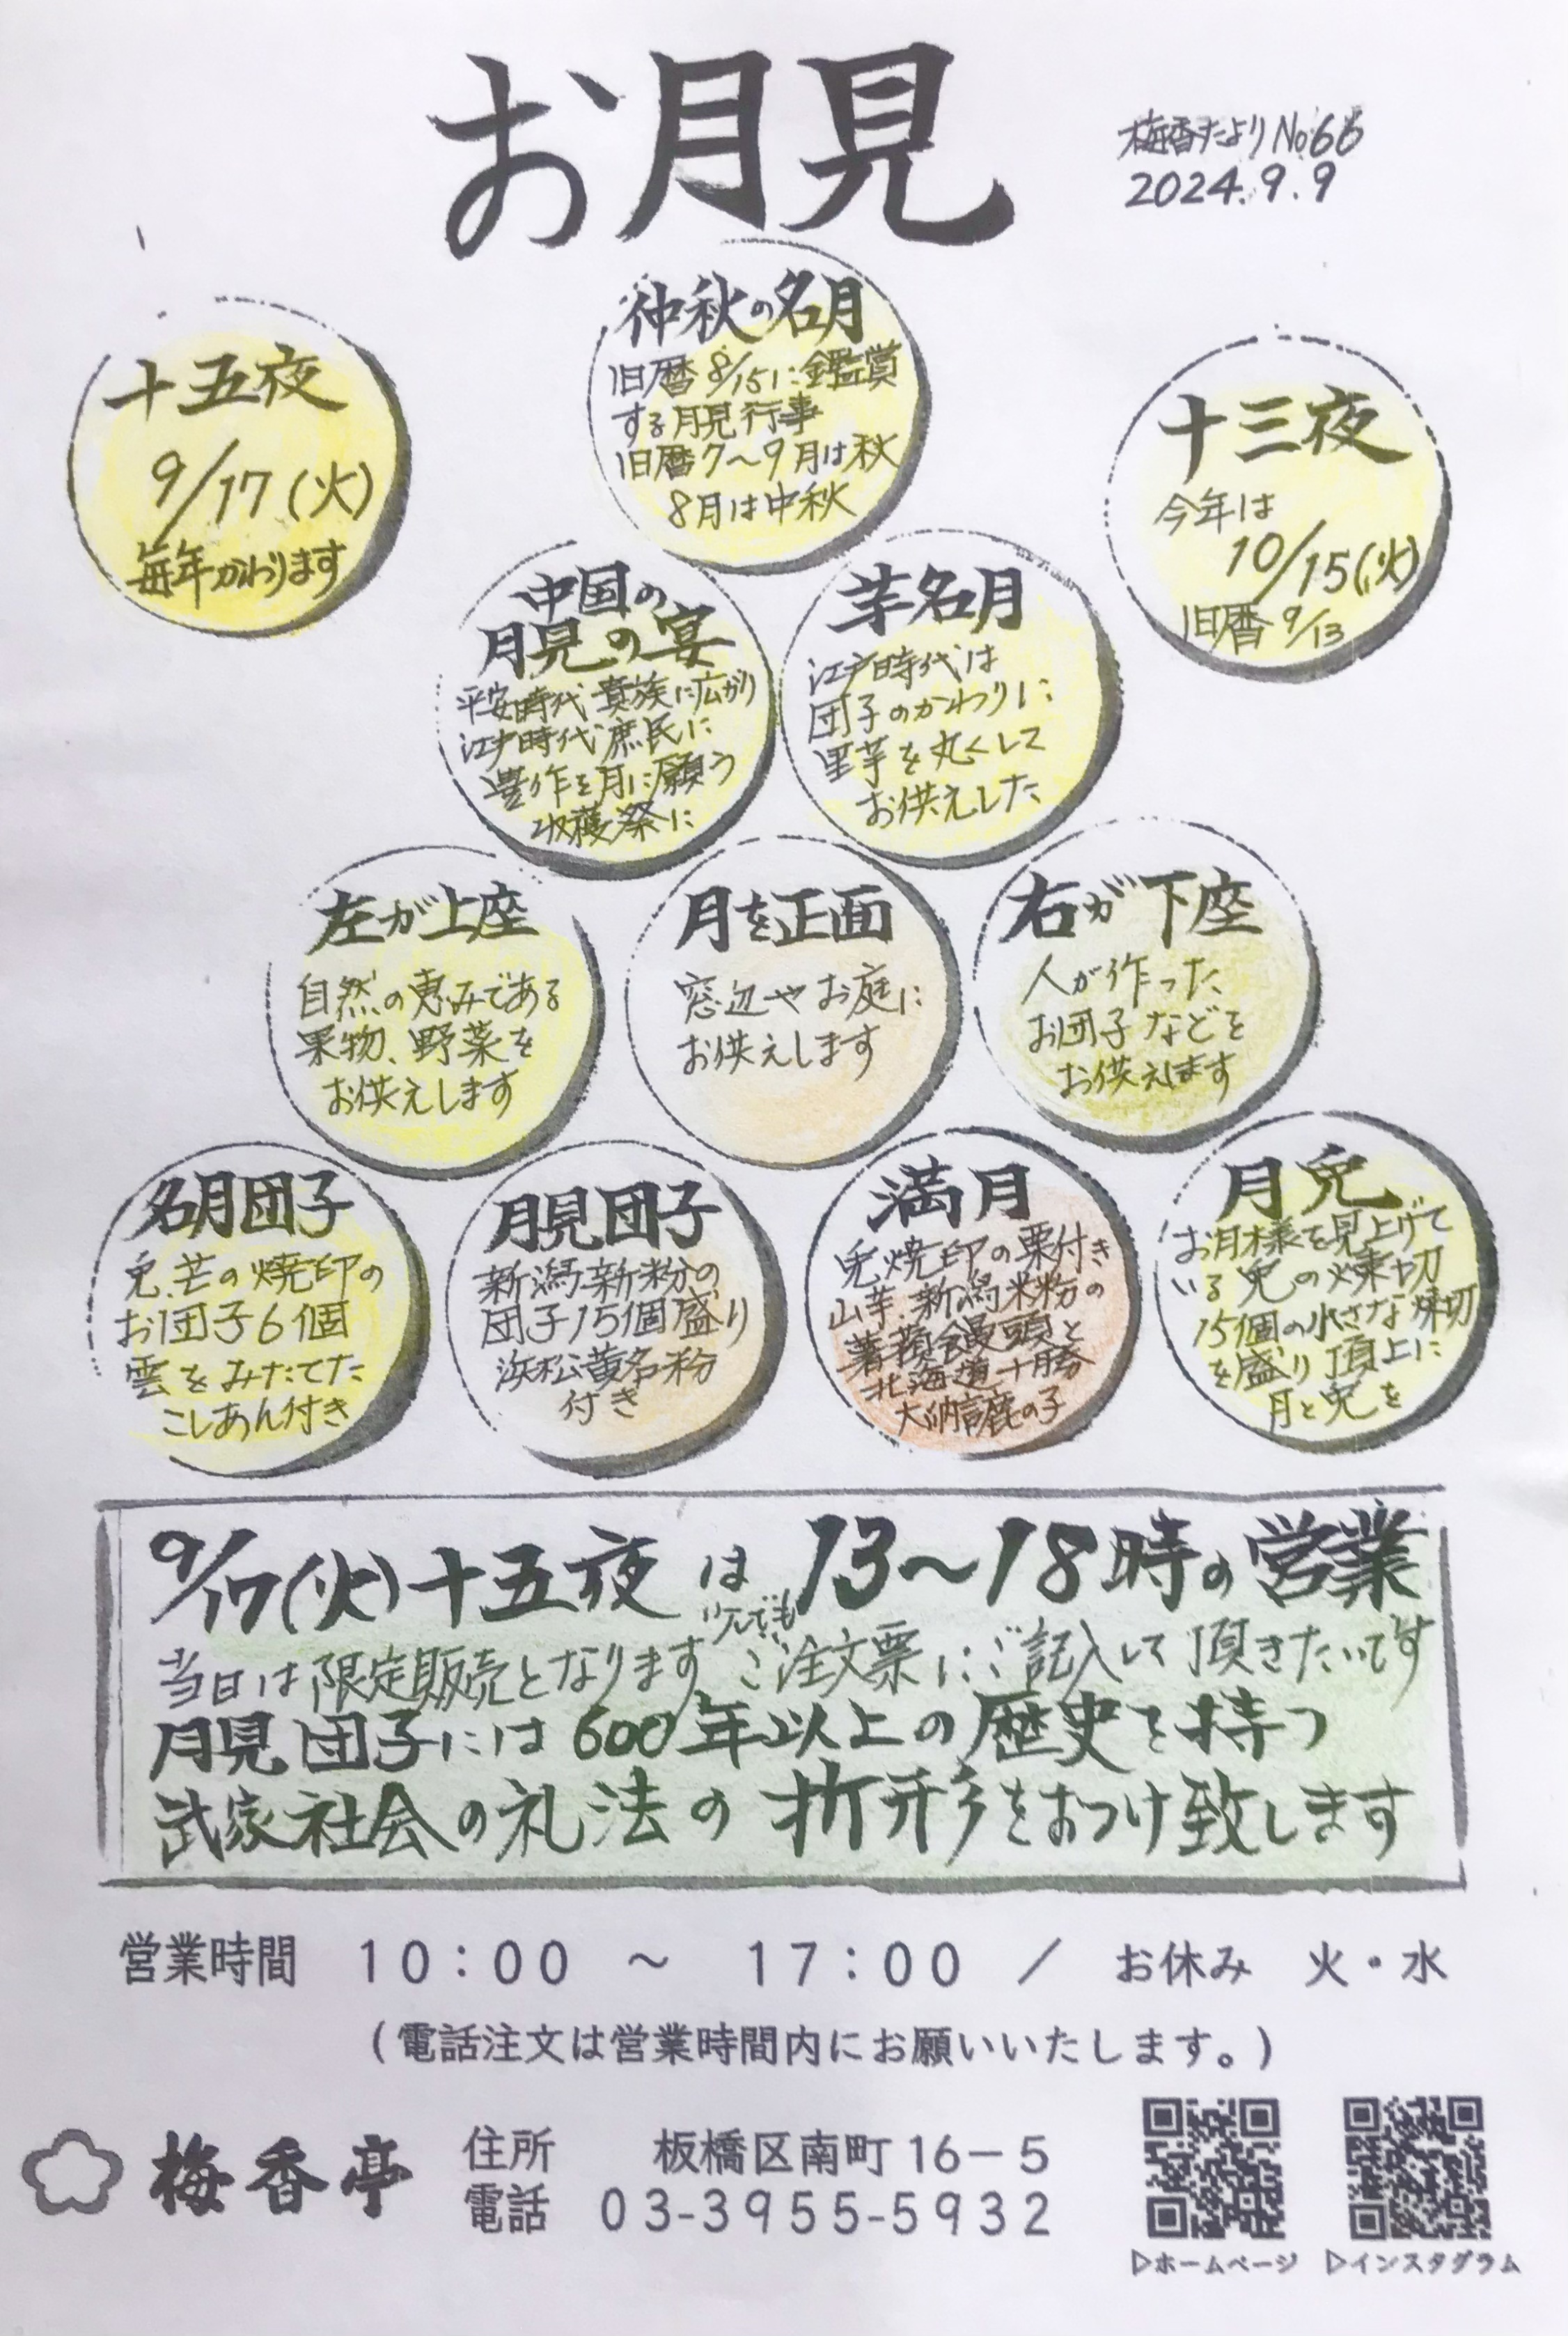 お月見
梅香だよりNo66
2024.9.9
十五夜
9/17(火)
毎年かわります
仲秋の名月
旧暦8/15に鑑賞
する月見行事
旧暦7～9月は秋
8月は中秋
十三夜
今年は
10/15(火)
旧暦9/13
中国の
月見の宴
平安時代貴族に広がり
江戸時代庶民に
豊作を月に願う
収穫祭に
芋名月
江戸時代は
団子のかわりに
里芋を丸くして
お供えした
左が上座
自然の恵みである
果物、野菜を
お供えします
月を正面
窓辺やお庭に
お供えします
右が下座
人が作った
お団子などを
お供えます
名月団子
兎、芒の焼印の
お団子6個
雲をみたてた
こしあん付き
月見団子
新潟新粉の
団子15個盛り
浜松黄名粉
付き
満月
兎焼印の栗付き
山芋、新潟米粉の
薯蕷饅頭と
北海道十勝
大納言鹿の子
月兎
お月様を見上げて
いる兎の煉切
15個の小さな煉切
を盛り頂上に
月と兎を
9/17(火)十五夜は13～18時の営業
当日は限定販売となります ご注文票にご記入して頂きたいです
月見団子には600年以上の歴史を持つ
武家社会の礼法の折形をおつけ致します
営業時間 10：00 ～ 17：00 ／ お休み 火・水
(電話注文は営業時間内にお願いいたします。)
梅香亭
住所 板橋区南町16－5
電話 03-3955-5932
▷ホームページ
▷インスタグラム